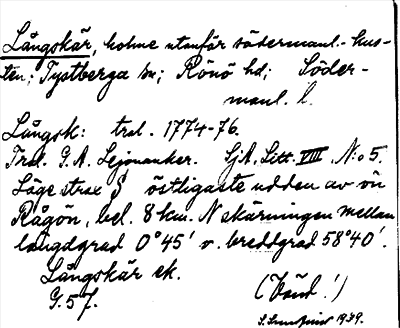 Långskär, holme utanför södermanl.-kus-
ten; Tystberga sn; Rönö hd; Söder-
manl. l.
Långsk: trol. 1774-76.
Trol. G.A. Lejonanker. SjA, Litt. VIII, N:o 5.
Läge strax S östligaste udden av ön
Rågön, bel. 8 km. N skärningen mellan
längdgrad 0°45' v. breddgrad 58°40'.
Långskär ek.
G. 57. (Vänd!)
1939.